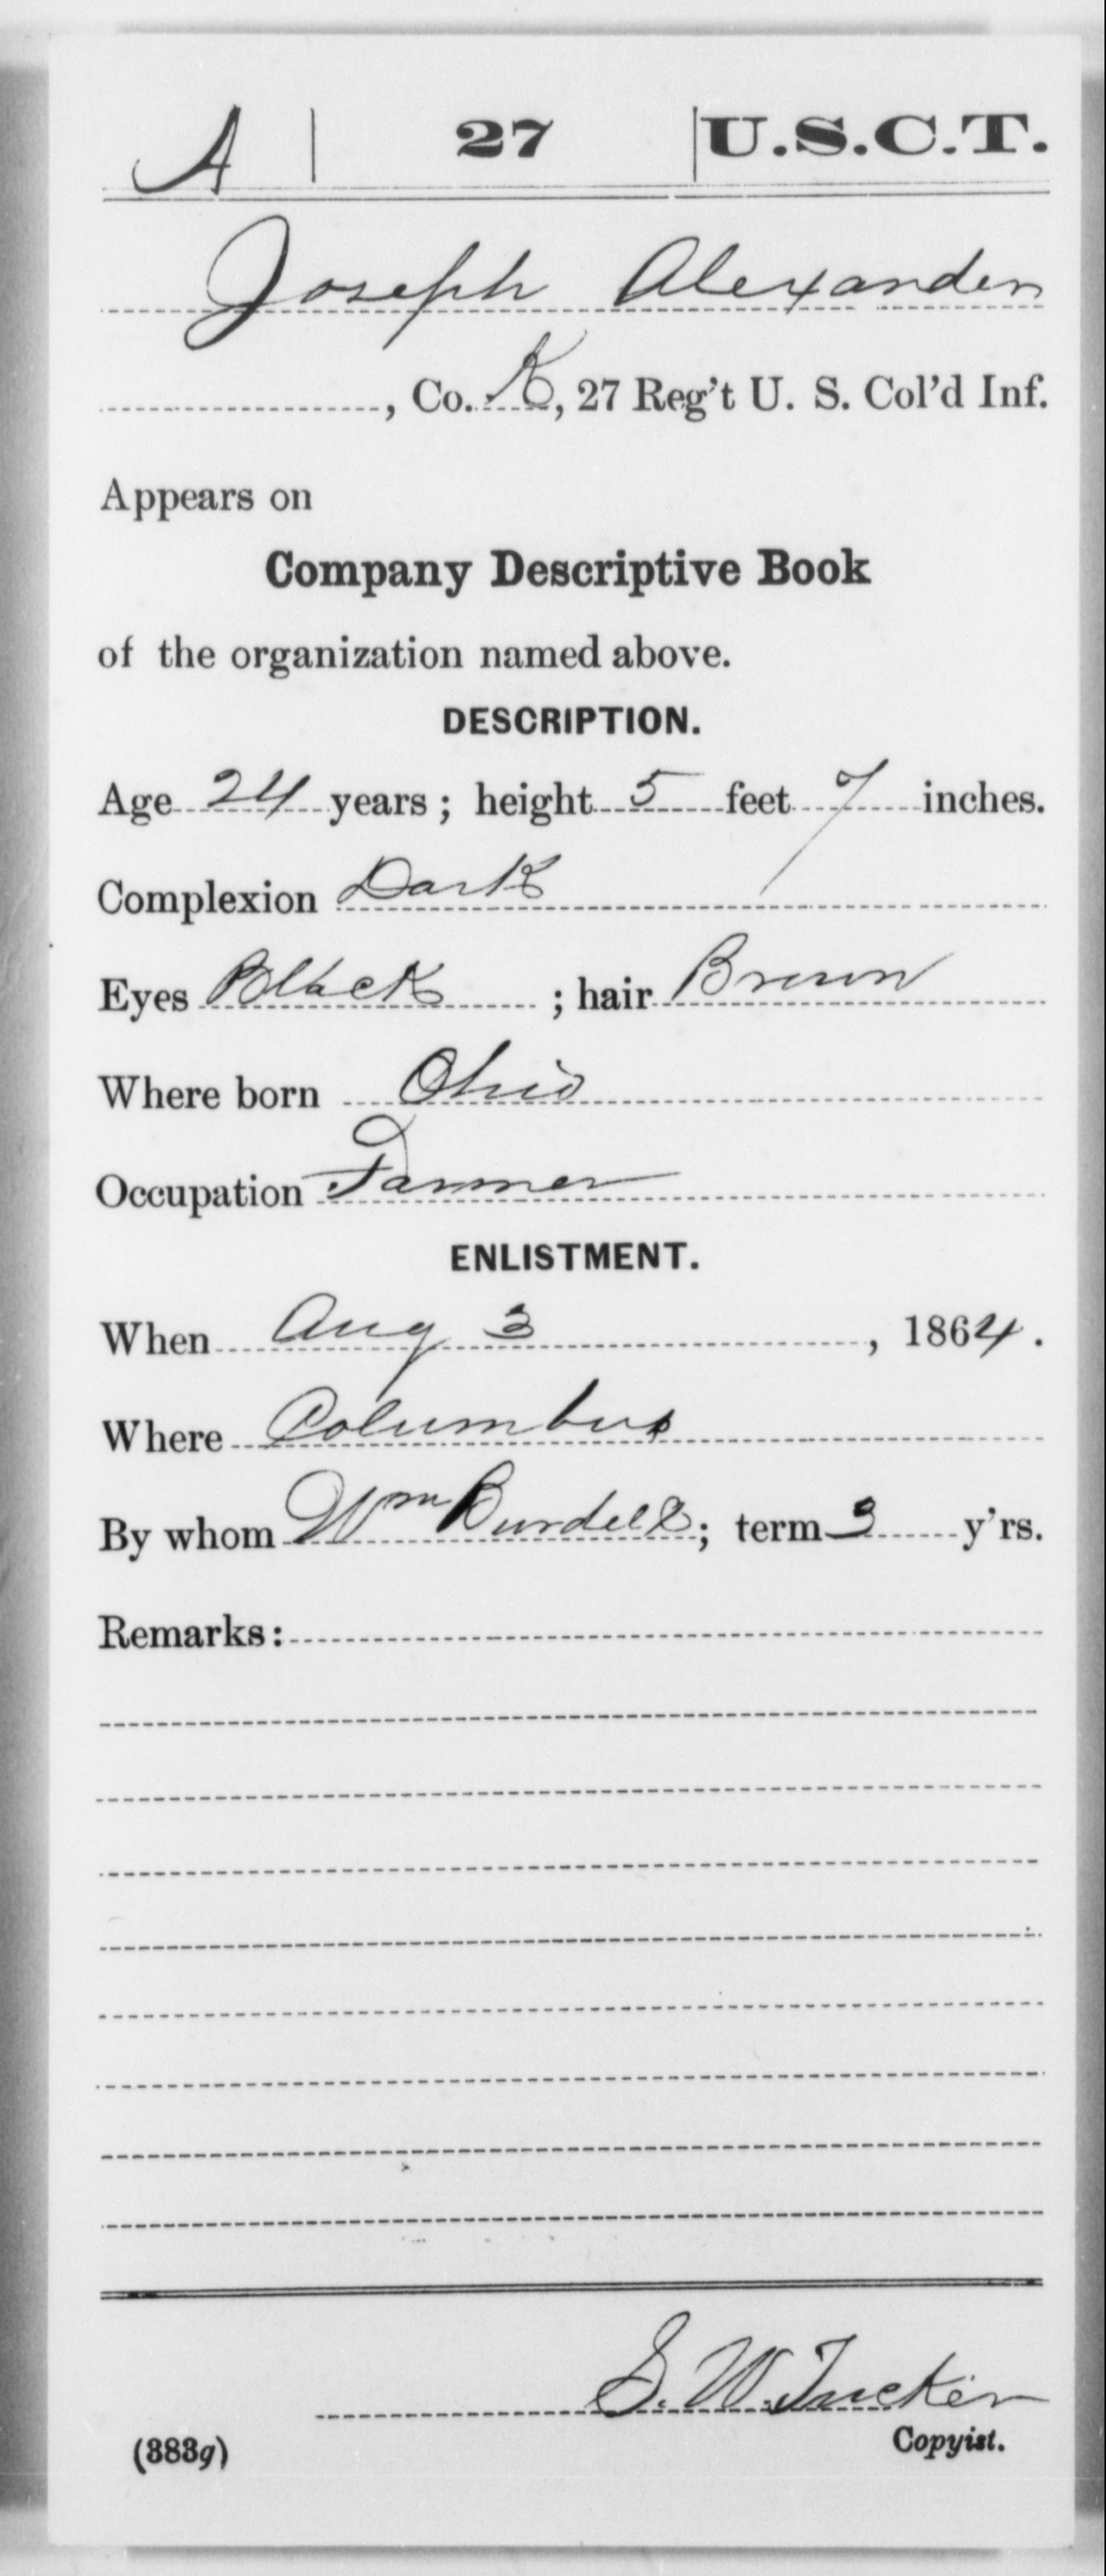 A | 27 | U.S.C.T.
Joseph Alexander
, Co. K, 27 Reg't U. S. Col'd Inf.
Appears on
Company Descriptive Book
of the organization named above.
DESCRIPTION.
Age 24 years; height 5 feet 7 inches.
Complexion Dark
Eyes Black; hair Brown
Where born Ohio
Occupation Farmer
ENLISTMENT.
When Aug 3, 1864.
Where Columbus
By whom Wm Burdell; term 3 y'rs.
Remarks:
S. W. Tucker
Copyist.
(383g)